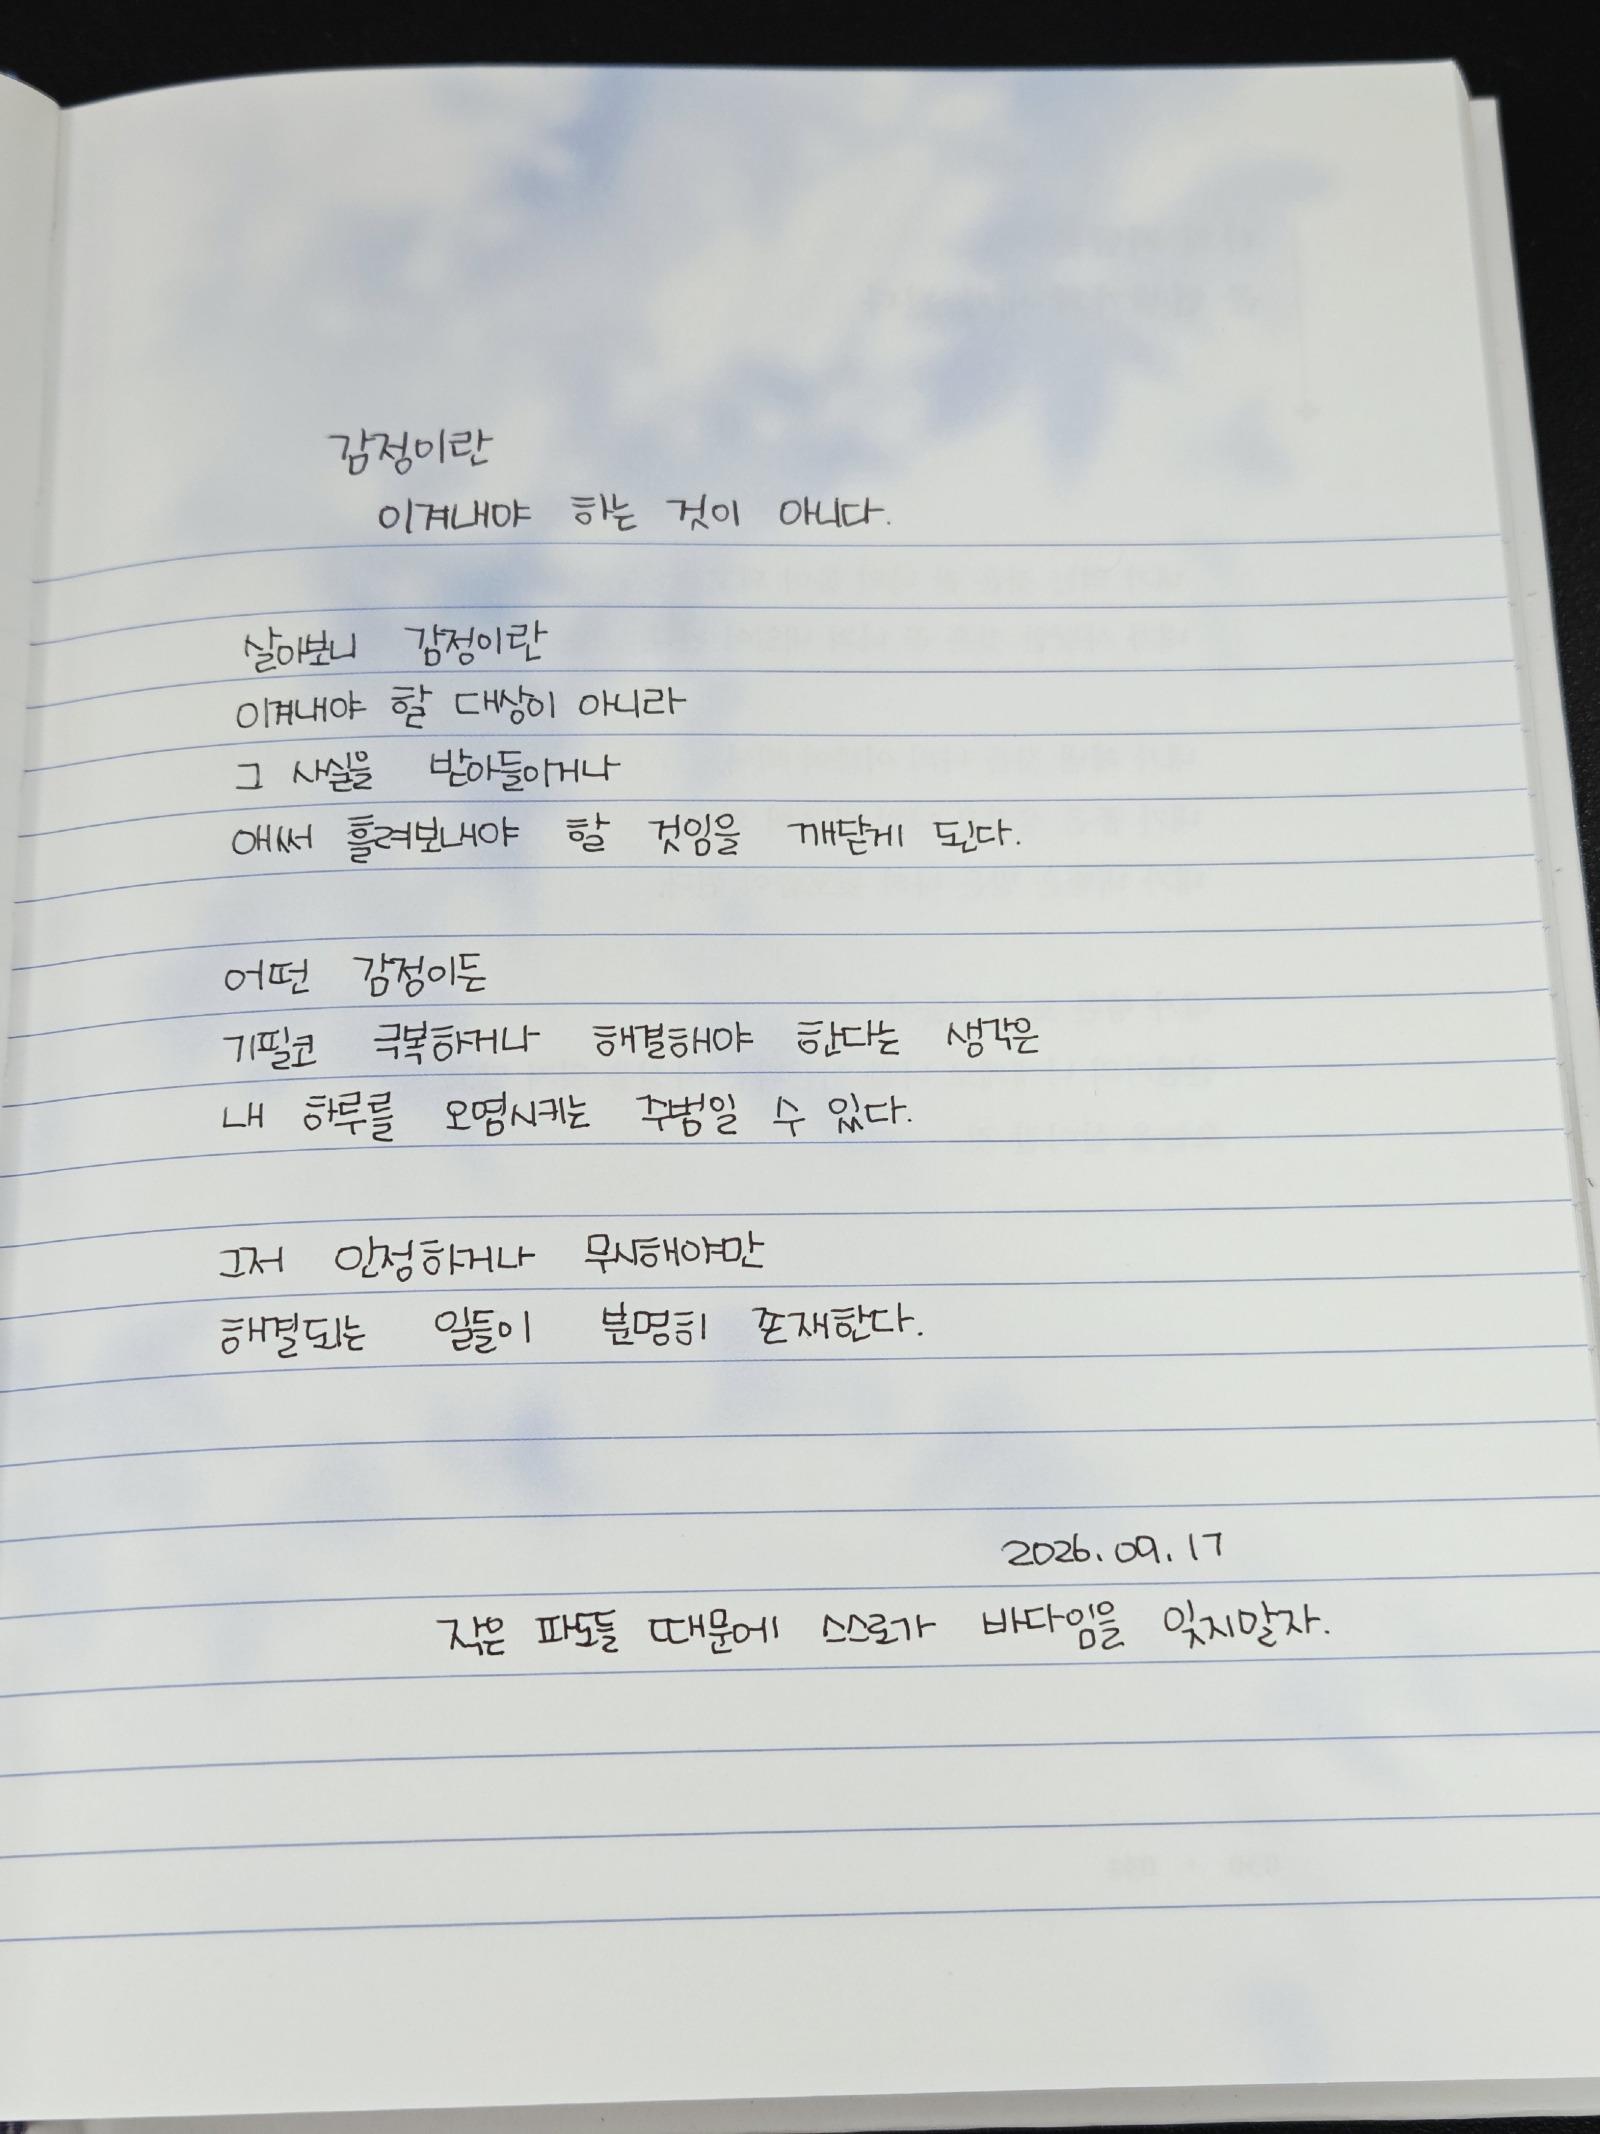 감정이란
이겨내야 하는 것이 아니다.
살아보니 감정이란
이겨내야 할 대상이 아니라
그 사실을 받아들이거나
애써 흘려보내야 할 것임을 깨닫게 된다.
어떤 감정이든
기필코 극복하거나 해결해야 한다는 생각은
내 하루를 오염시키는 주범일 수 있다.
그저 인정하거나 무시해야만
해결되는 일들이 분명히 존재한다.
2026.09.17
작은 파도들 때문에 스스로가 바다임을 잊지말자.